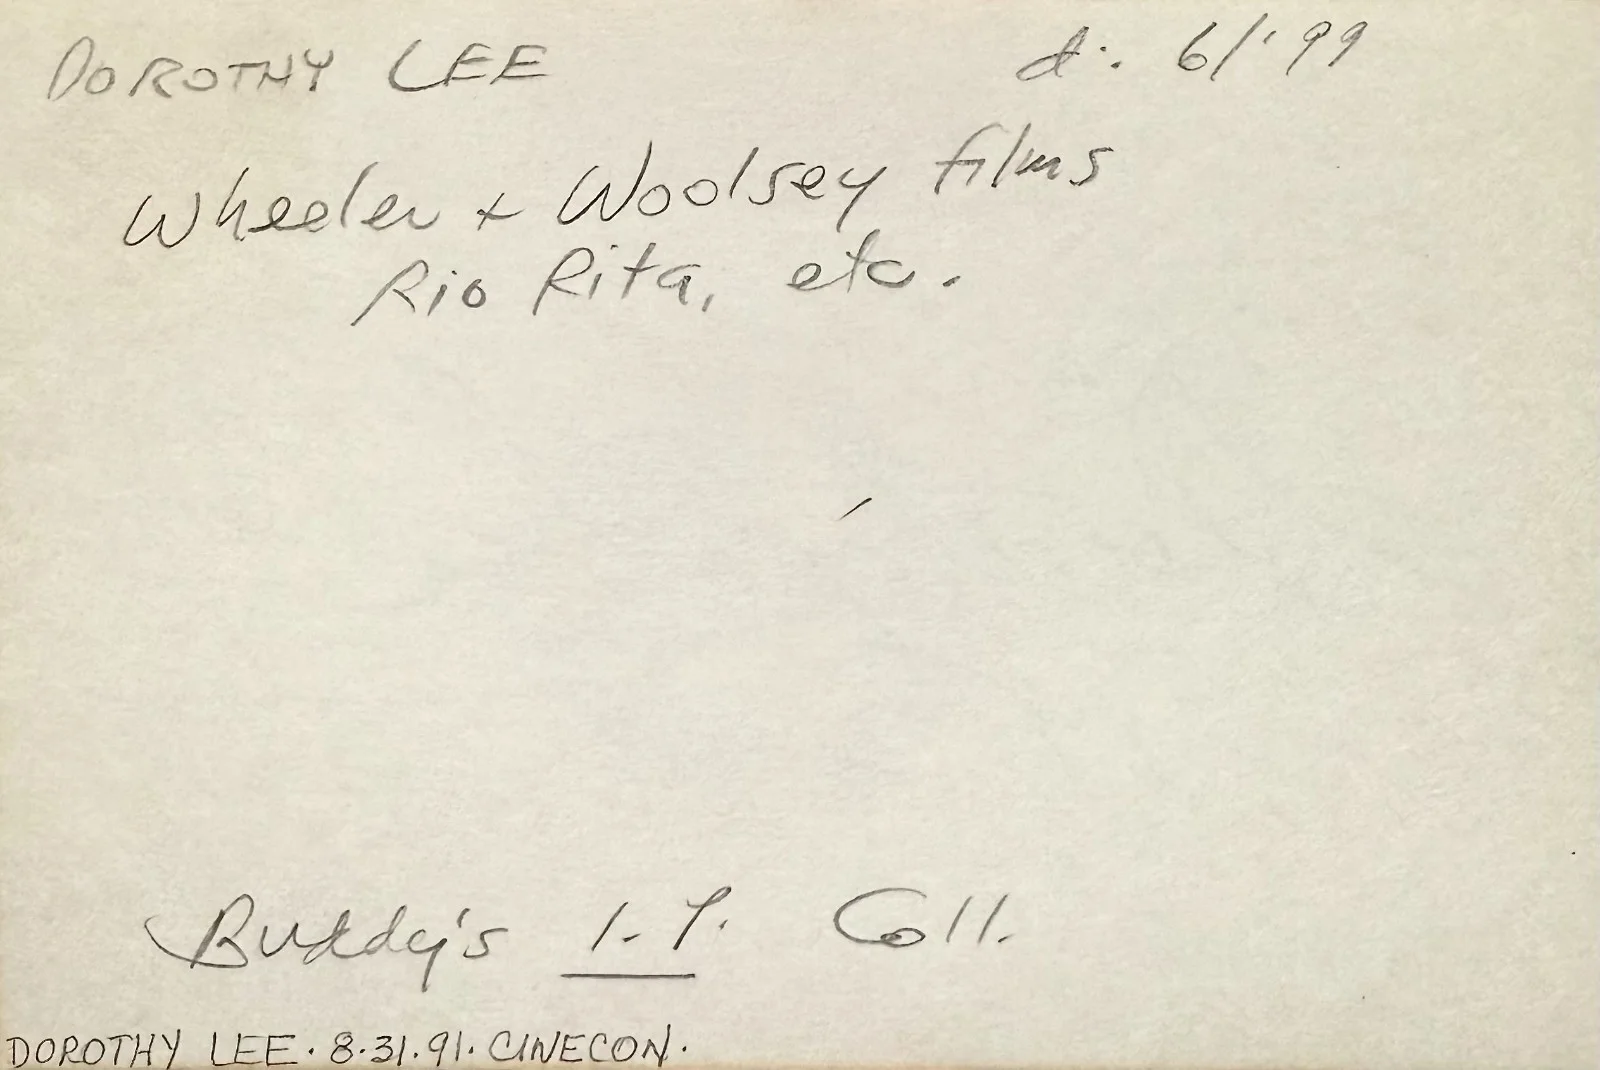 DOROTHY LEE d. 6/'99
Wheeler + Woolsey films
Rio Rita, etc.
Buddy's Coll.
DOROTHY LEE. 8.31.91. CINECON.